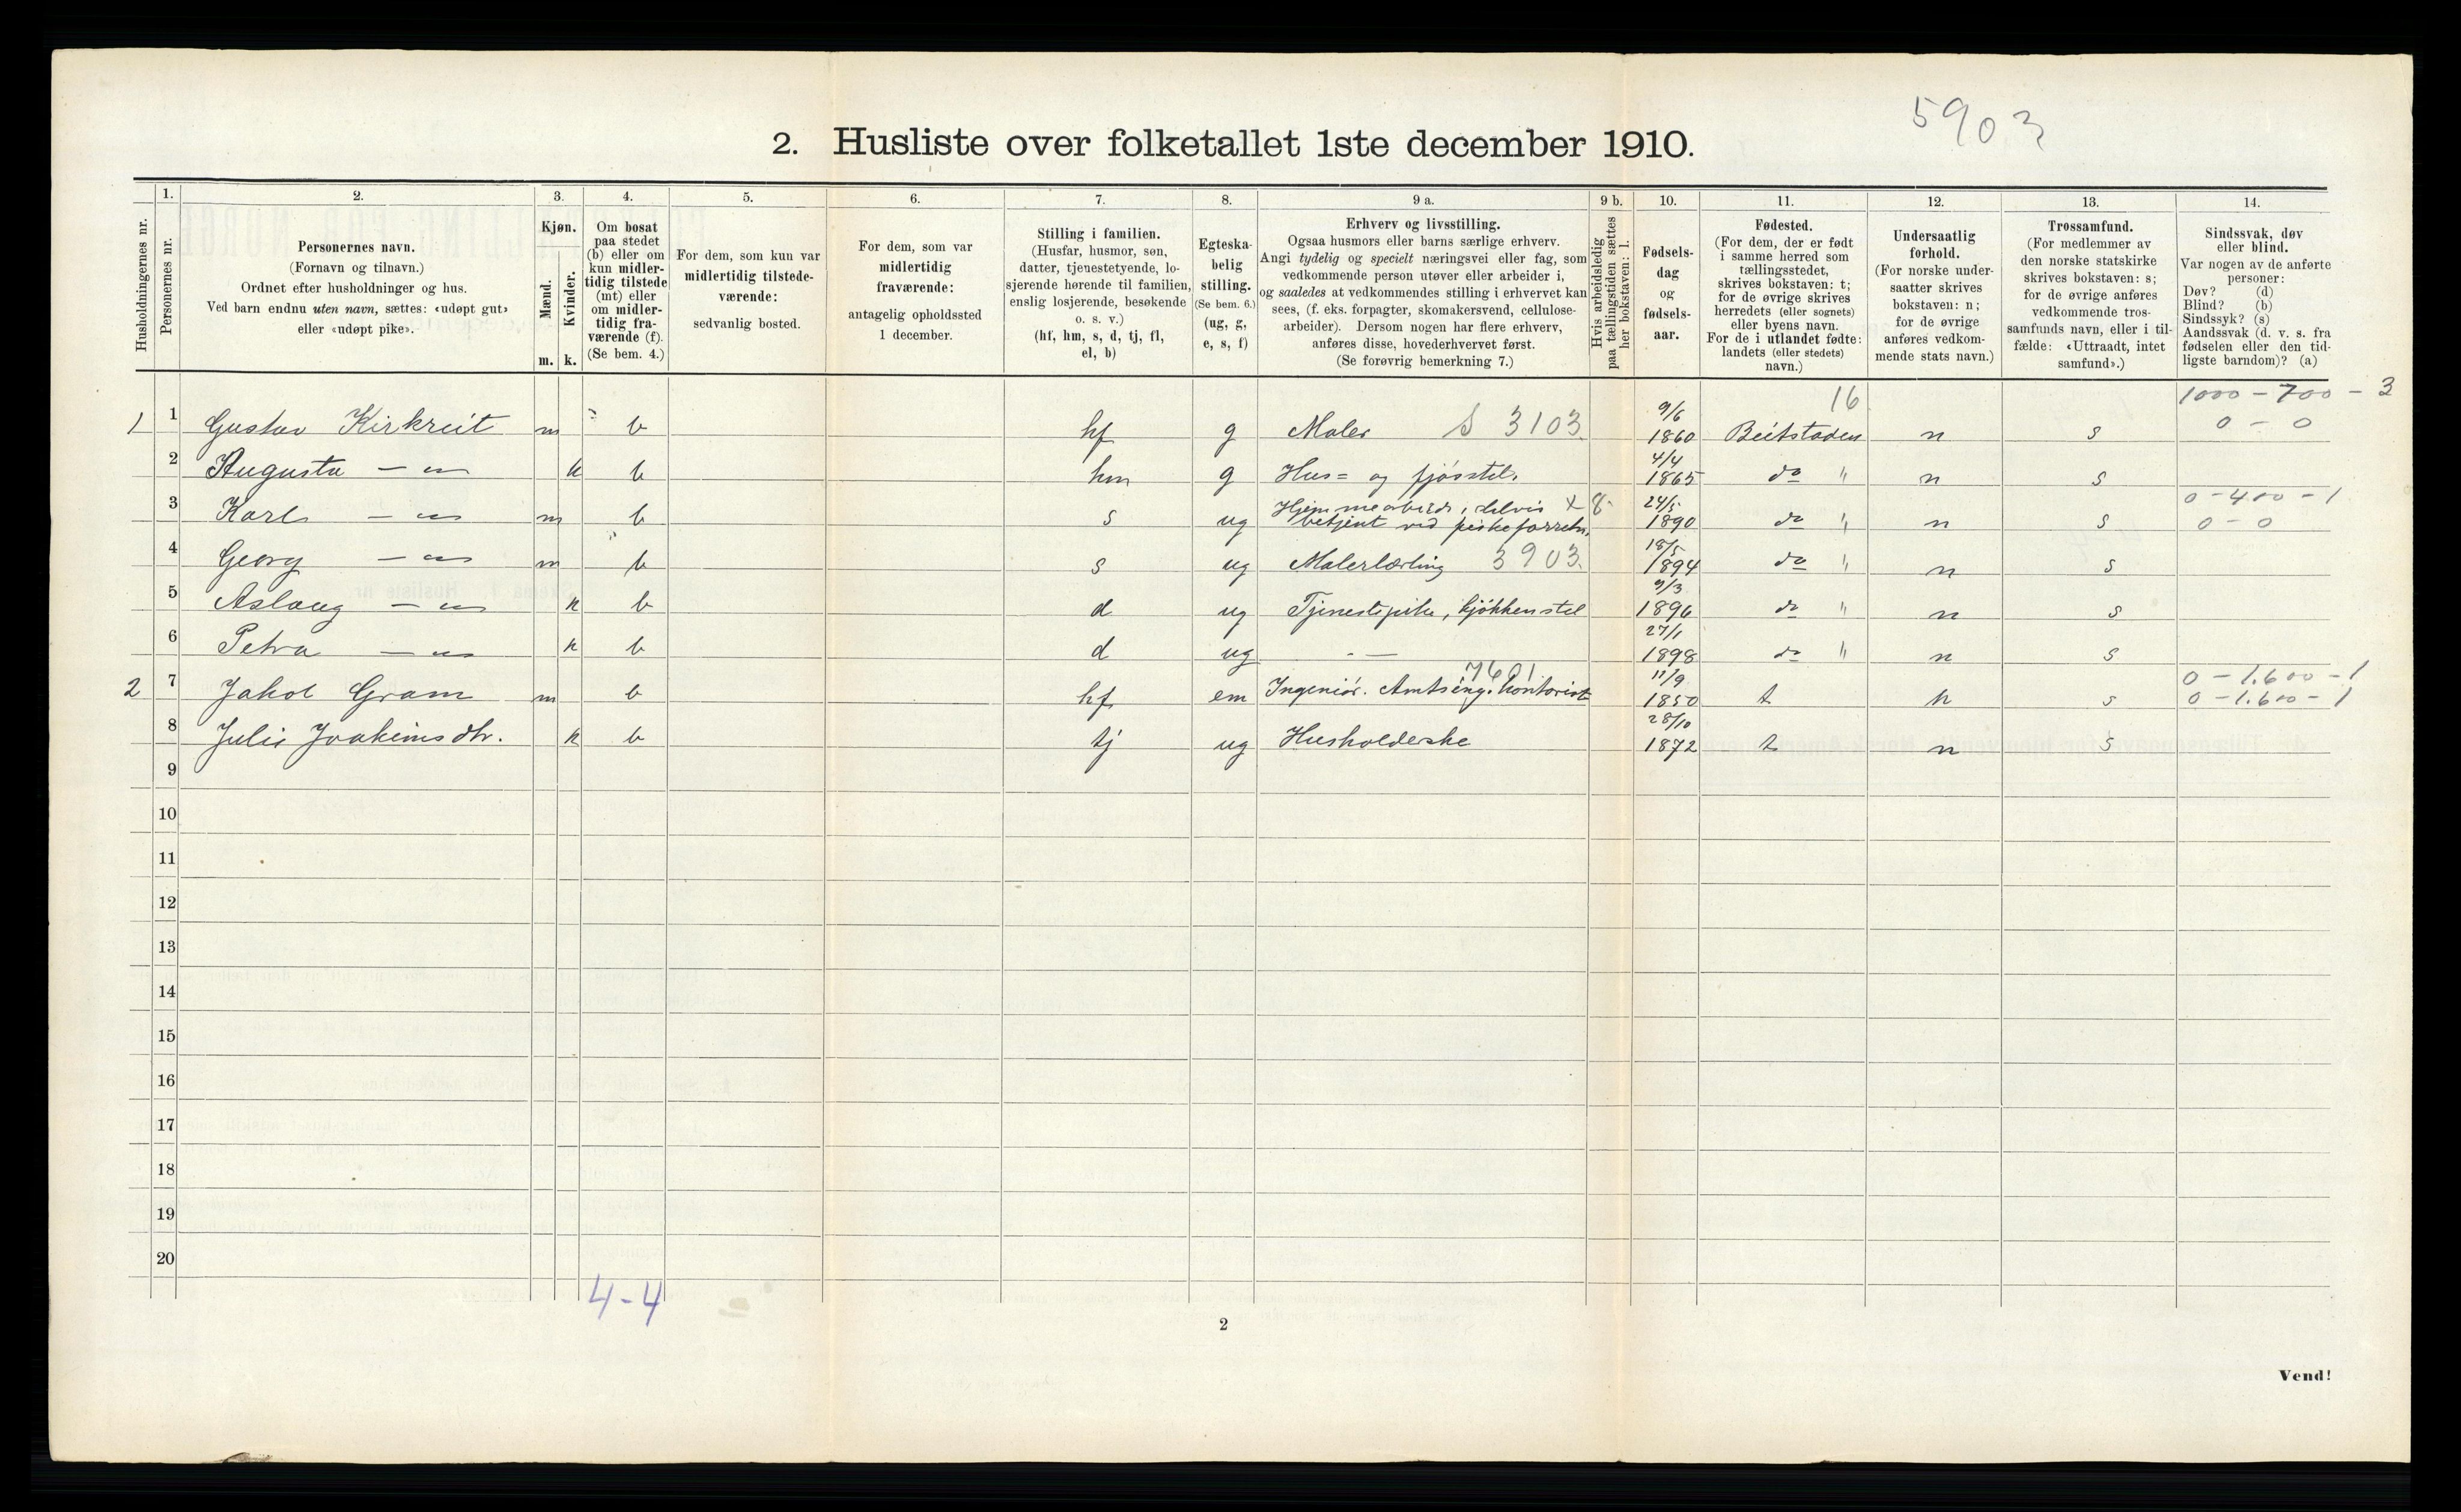 5903
2. Husliste over folketallet 1ste december 1910.
Husholdningernes nr.
1.
Personernes nr.
2.
Personernes navn.
(Fornavn og tilnavn.)
Ordnet efter husholdninger og hus.
Ved barn endnu uten navn, sættes: «udøpt gut»
eller «udøpt pike».
3.
Kjøn.
Mænd.
Kvinder.
m. k.
4.
Om bosat
paa stedet
(b) eller om
kun midler-
tidig tilstede
(mt) eller
om midler-
tidig fra-
værende (f).
(Se bem. 4.)
5.
For dem, som kun var
midlertidig tilstede-
værende:
sedvanlig bosted.
6.
For dem, som var
midlertidig
fraværende:
antagelig opholdssted
1 december.
7.
Stilling i familien.
(Husfar, husmor, søn,
datter, tjenestetyende, lo-
sjerende hørende til familien,
enslig losjerende, besøkende
o. s. v.)
(hf, hm, s, d, tj, fl,
el, b)
8.
Egteska-
belig
stilling.
(Se bem. 6.)
(ug, g,
e, s, f)
9 a.
Erhverv og livsstilling.
Ogsaa husmors eller barns særlige erhverv.
Angi tydelig og specielt næringsvei eller fag, som
vedkommende person utøver eller arbeider i,
og saaledes at vedkommendes stilling i erhvervet kan
sees, (f. eks. forpagter, skomakersvend, cellulose-
arbeider). Dersom nogen har flere erhverv,
anføres disse, hovederhvervet først.
(Se forøvrig bemerkning 7.)
9 b.
Hvis arbeidsledig
paa tællingstiden sættes
her bokstaven: l.
10.
Fødsels-
dag
og
fødsels-
aar.
11.
Fødested.
(For dem, der er født
i samme herred som
tællingsstedet,
skrives bokstaven: t;
for de øvrige skrives
herredets (eller sognets)
eller byens navn.
For de i utlandet fødte:
landets (eller stedets)
navn.)
12.
Undersaatlig
forhold.
(For norske under-
saatter skrives
bokstaven: n;
for de øvrige
anføres vedkom-
mende stats navn.)
13.
Trossamfund.
(For medlemmer av
den norske statskirke
skrives bokstaven: s;
for de øvrige anføres
vedkommende tros-
samfunds navn, eller i til-
fælde: «Uttraadt, intet
samfund».)
14.
Sindssvak, døv
eller blind.
Var nogen av de anførte
personer:
Døv? (d)
Blind? (b)
Sindssyk? (s)
Aandssvak (d. v. s. fra
fødselen eller den tid-
ligste barndom)? (a)
16 1000 - 700 - 3
1 1 Gustav Kirkreit m b hf g Maler S 3103 9/6 1860 Beitstaden n s 0 - 0
2 Augusta — " — k b hm g Hus= og fjøsstel. 4/4 1865 do " n s
3 Karl — " — m b s ug Hjemmearbeide, delvis x 8
betjent ved fiskeforretn. 24/5 1890 do " n s 0 - 400 - 1
0 - 0
4 Georg — " — m b s ug Malerlærling 3903 18/5 1894 do " n s
5 Aslaug — " — k b d ug Tjenestepike, kjøkkenstel 9/3 1896 do " n s
6 Petra — " — k b d ug - — 27/1 1898 do " n s
2 7 Jakob Gram m b hf em 7601 Ingeniør. Amtsing. kontorist 11/9 1850 t n s 0 - 1.600 - 1
0 - 1.600 - 1
8 Julie Joakimsdtr. k b tj ug Husholderske 28/10 1872 t n s
9
10
11
12
13
14
15
16
17
18
19
20
4-4
2
Vend!